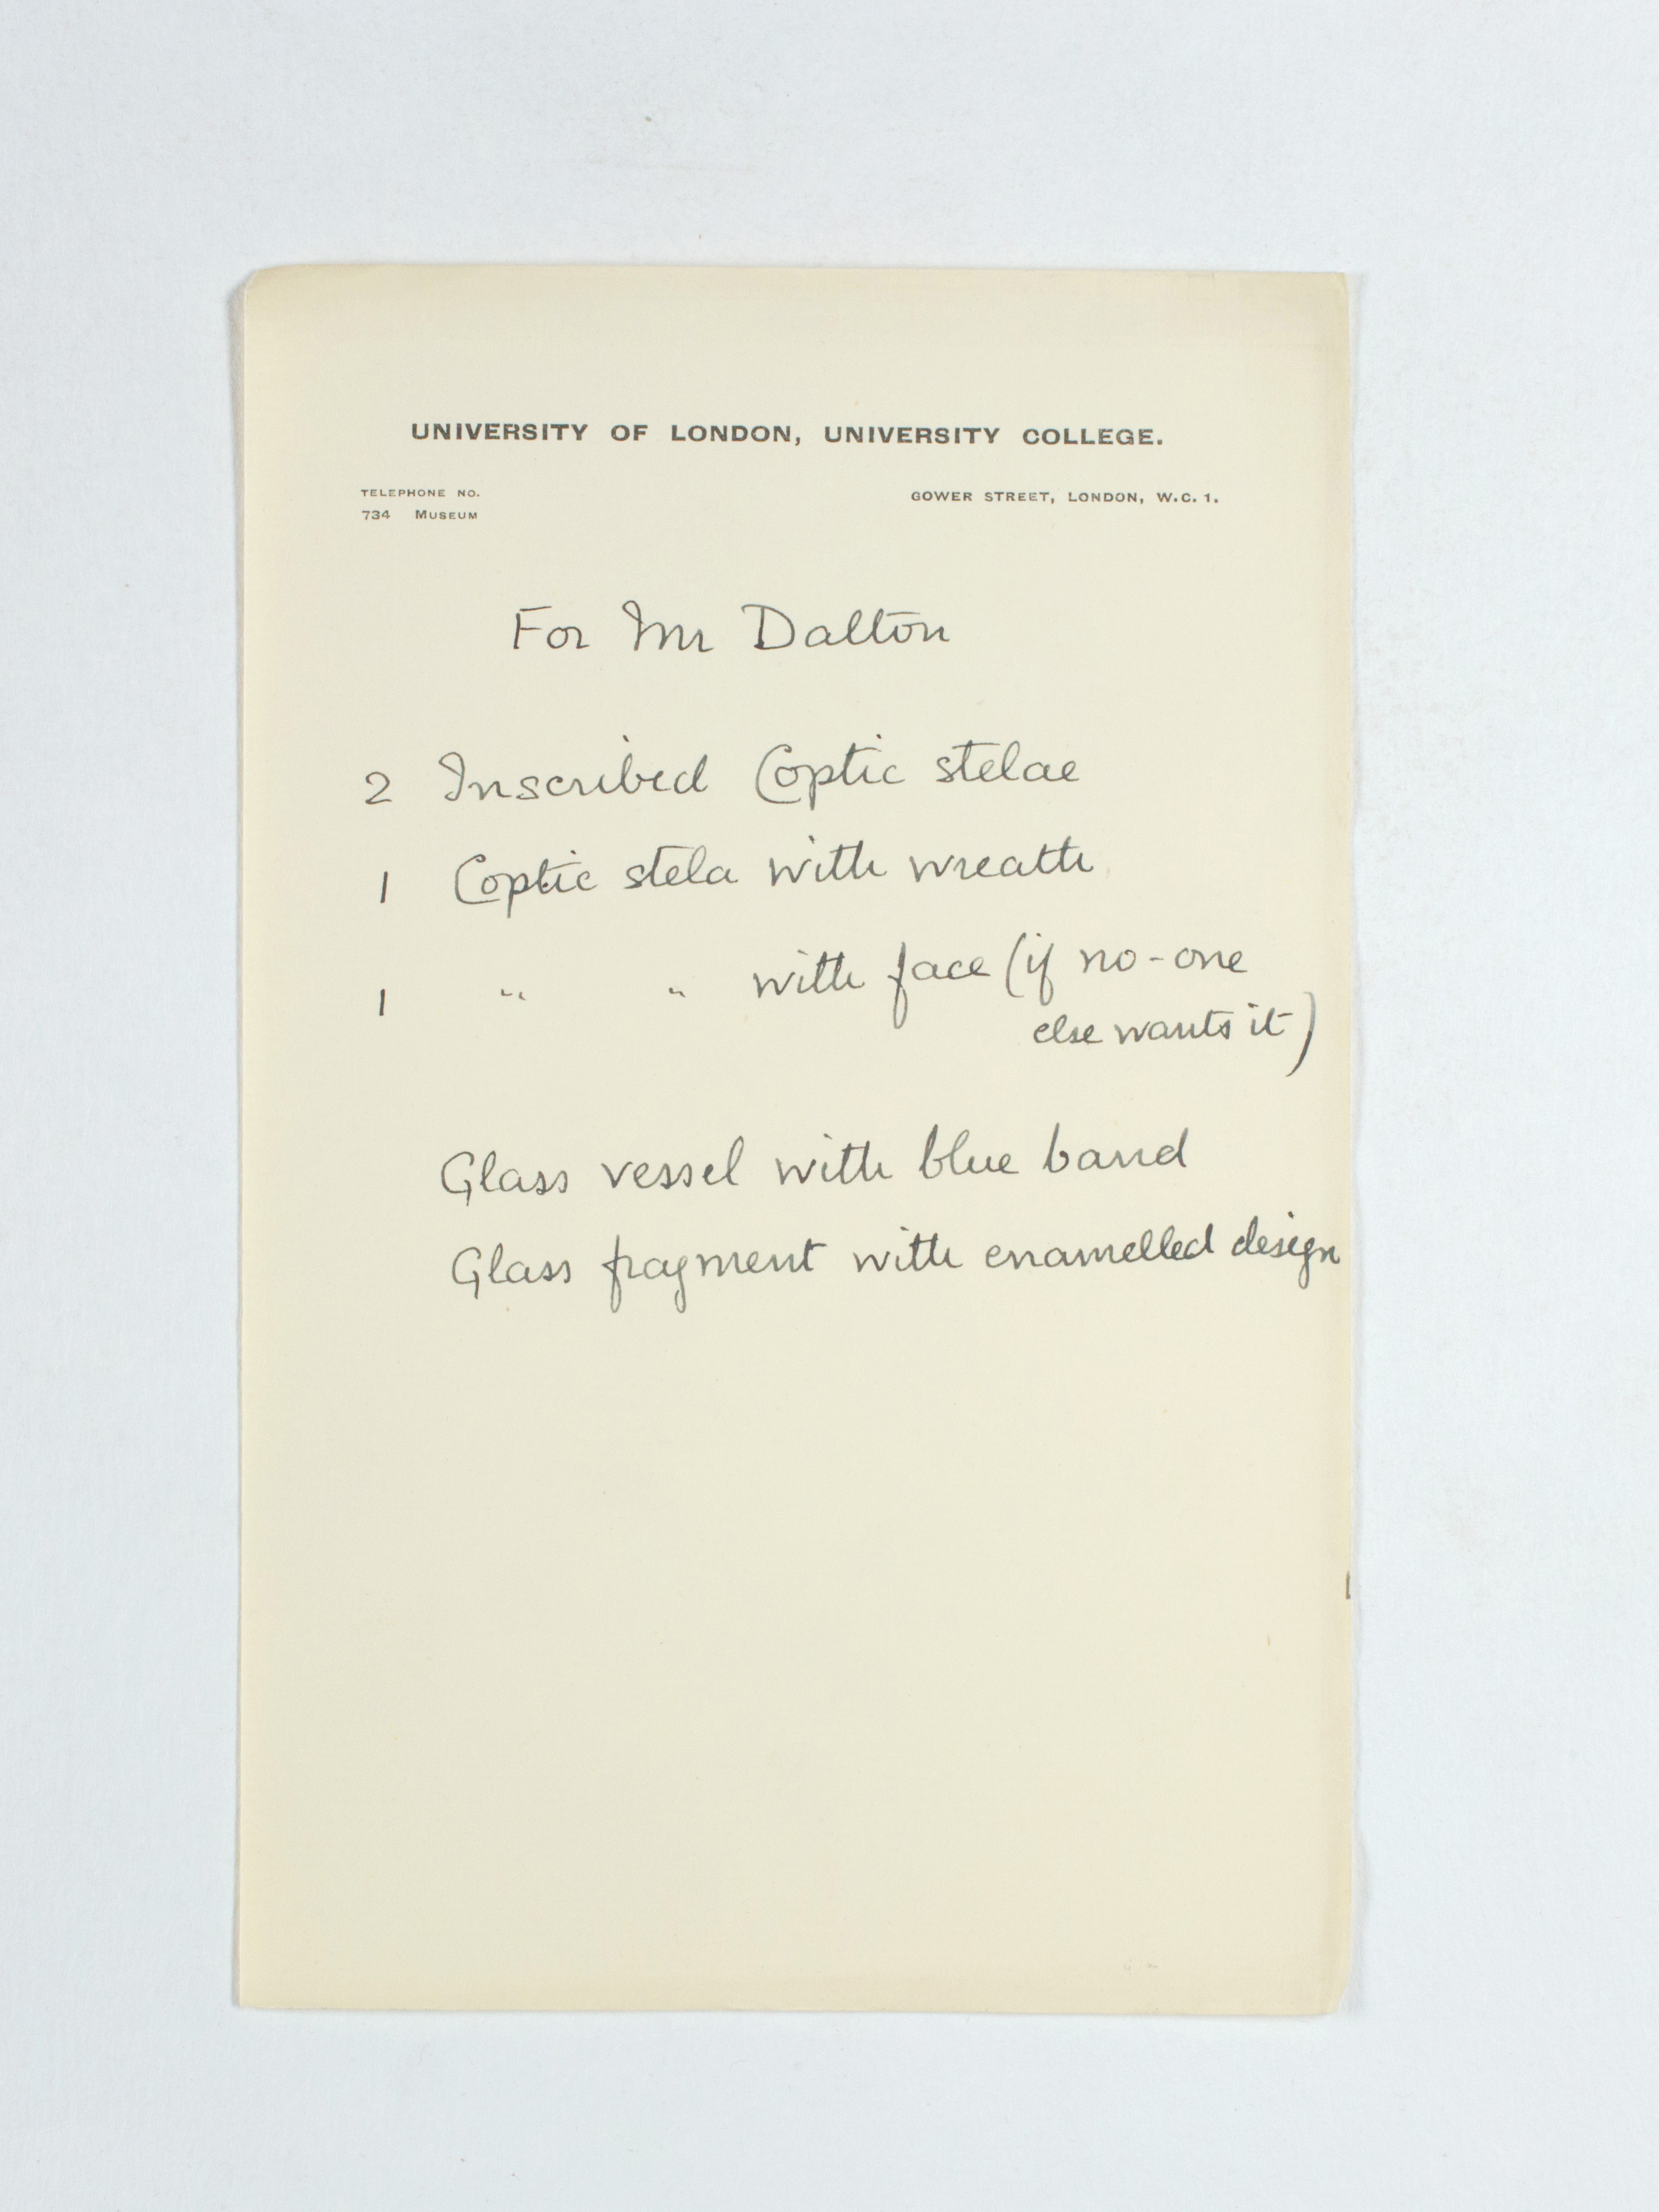 UNIVERSITY OF LONDON, UNIVERSITY COLLEGE.
TELEPHONE NO.
734 MUSEUM
GOWER STREET, LONDON, W.C. 1.
For Mr Dalton
2 Inscribed Coptic stelae
1 Coptic stela with wreath
1 " " with face (if no-one
else wants it)
Glass vessel with blue band
Glass fragment with enamelled design